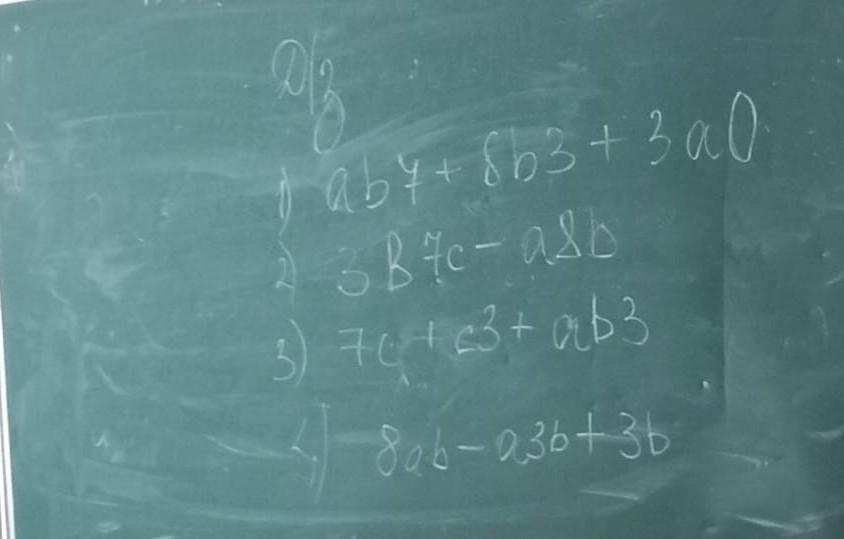 Д/з
1) ab7 + 8b3 + 3a0
2) 3B7c - a8b
3) 7c + c3 + ab3
4) 8ab - a3b + 3b